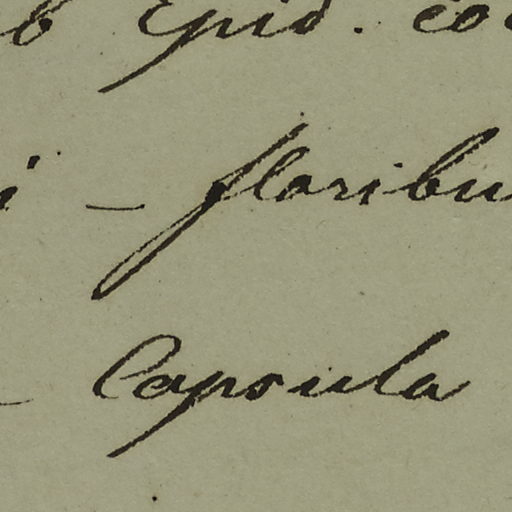 b Epid. co
i – floribu
– Capsula